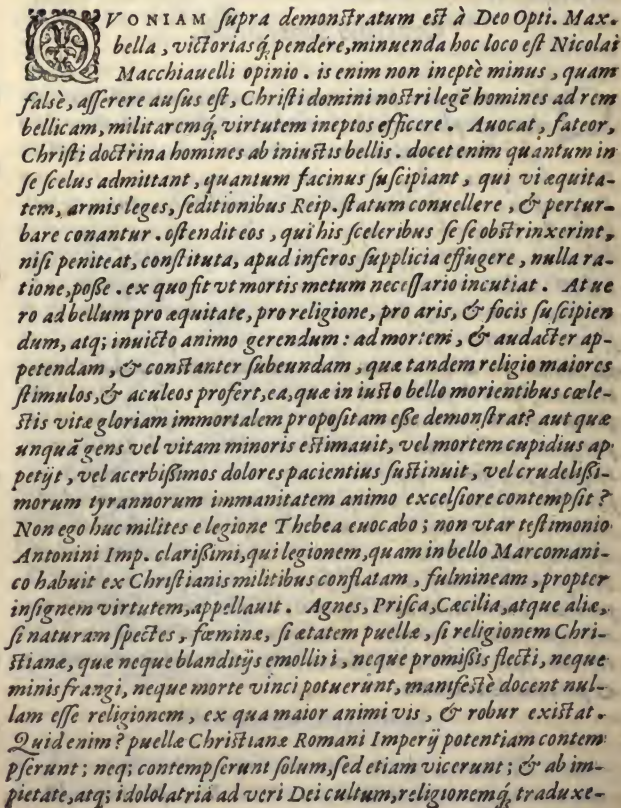 QVONIAM ſupra demonſtratum eſt à Deo Opti. Max.
bella, victoriasq́; pendere, minuenda hoc loco eſt Nicolai
Macchiauelli opinio. is enim non ineptè minus, quam
falsè, aſſerere auſus eſt, Chriſti domini noſtri legē homines ad rem
bellicam, militaremq́; virtutem ineptos efficere. Auocat, fateor,
Chriſti doctrina homines ab iniuſtis bellis. docet enim quantum in
ſe ſcelus admittant, quantum facinus ſuſcipiant, qui vi æquita-
tem, armis leges, ſeditionibus Reip. ſtatum conuellere, & pertur-
bare conantur. oſtendit eos, qui his ſceleribus ſe ſe obſtrinxerint,
niſi peniteat, conſtituta, apud inferos ſupplicia effugere, nulla ra-
tione, poße. ex quo fit vt mortis metum neceſſario incutiat. At ue
ro ad bellum pro æquitate, pro religione, pro aris, & focis ſuſcipien
dum, atq; inuicto animo gerendum: ad mortem, & audacter ap-
petendam, & conſtanter ſubeundam, quæ tandem religio maiores
ſtimulos, & aculeos profert, ea, quæ in iuſto bello morientibus cœle-
ſtis vitæ gloriam immortalem propoſitam eße demonſtrat? aut quæ
unquā gens vel vitam minoris eſtimauit, vel mortem cupidius ap
petijt, vel acerbißimos dolores pacientius ſuſtinuit, vel crudelißi-
morum tyrannorum immanitatem animo excelſiore contempſit?
Non ego huc milites e legione Thebea euocabo; non vtar teſtimonio
Antonini Imp. clarißimi, qui legionem, quam in bello Marcomani-
co habuit ex Chriſtianis militibus conflatam, fulmineam, propter
inſignem virtutem, appellauit. Agnes, Priſca, Cæcilia, atque aliæ,
ſi naturam ſpectes, fœminæ, ſi ætatem puellæ, ſi religionem Chri-
ſtianæ, quæ neque blanditijs emolliri, neque promißis flecti, neque
minis frangi, neque morte vinci potuerunt, manifeſtè docent nul-
lam eſſe religionem, ex qua maior animi vis, & robur exiſtat.
Quid enim? puellæ Chriſtianæ Romani Imperij potentiam contem
pſerunt; neq; contempſerunt ſolum, ſed etiam vicerunt; & ab im-
pietate, atq; idololatria ad veri Dei cultum, religionemq́; traduxe-